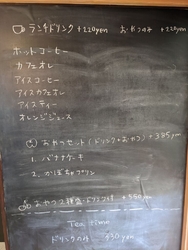 ランチドリンク +220yen おやつのみ +320yen
ホットコーヒー
カフェオレ
アイスコーヒー
アイスカフェオレ
アイスティー
オレンジジュース
おやつセット(ドリンク+おやつ) +385yen
1. バナナケーキ
2. かぼちゃプリン
おやつ2種盛・ドリンク付 +550yen
Tea time
ドリンクのみ 330yen